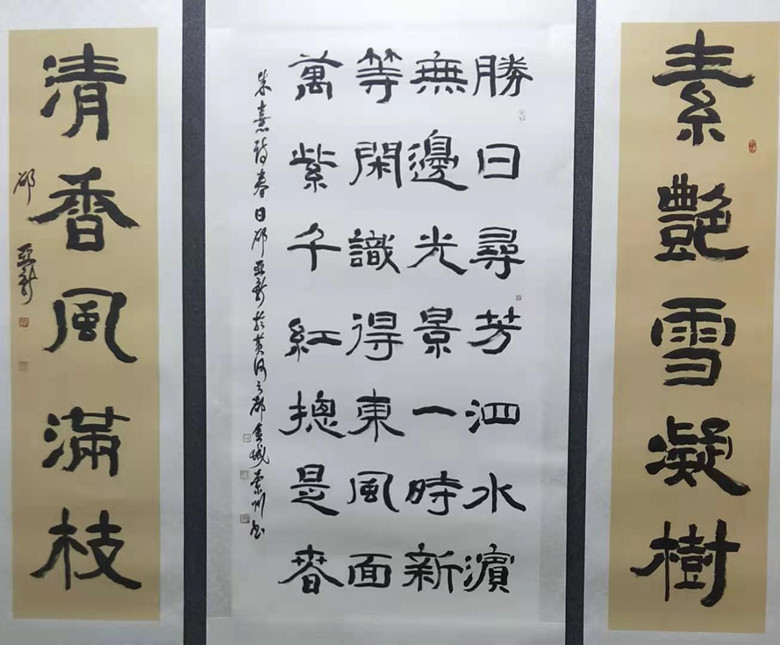 素艷雪凝樹
勝日尋芳泗水濱
無邊光景一時新
等閑識得東風面
萬紫千紅摠是春
朱熹詩春日亞新於黄河之都金城蘭州書
清香風滿枝
亞新